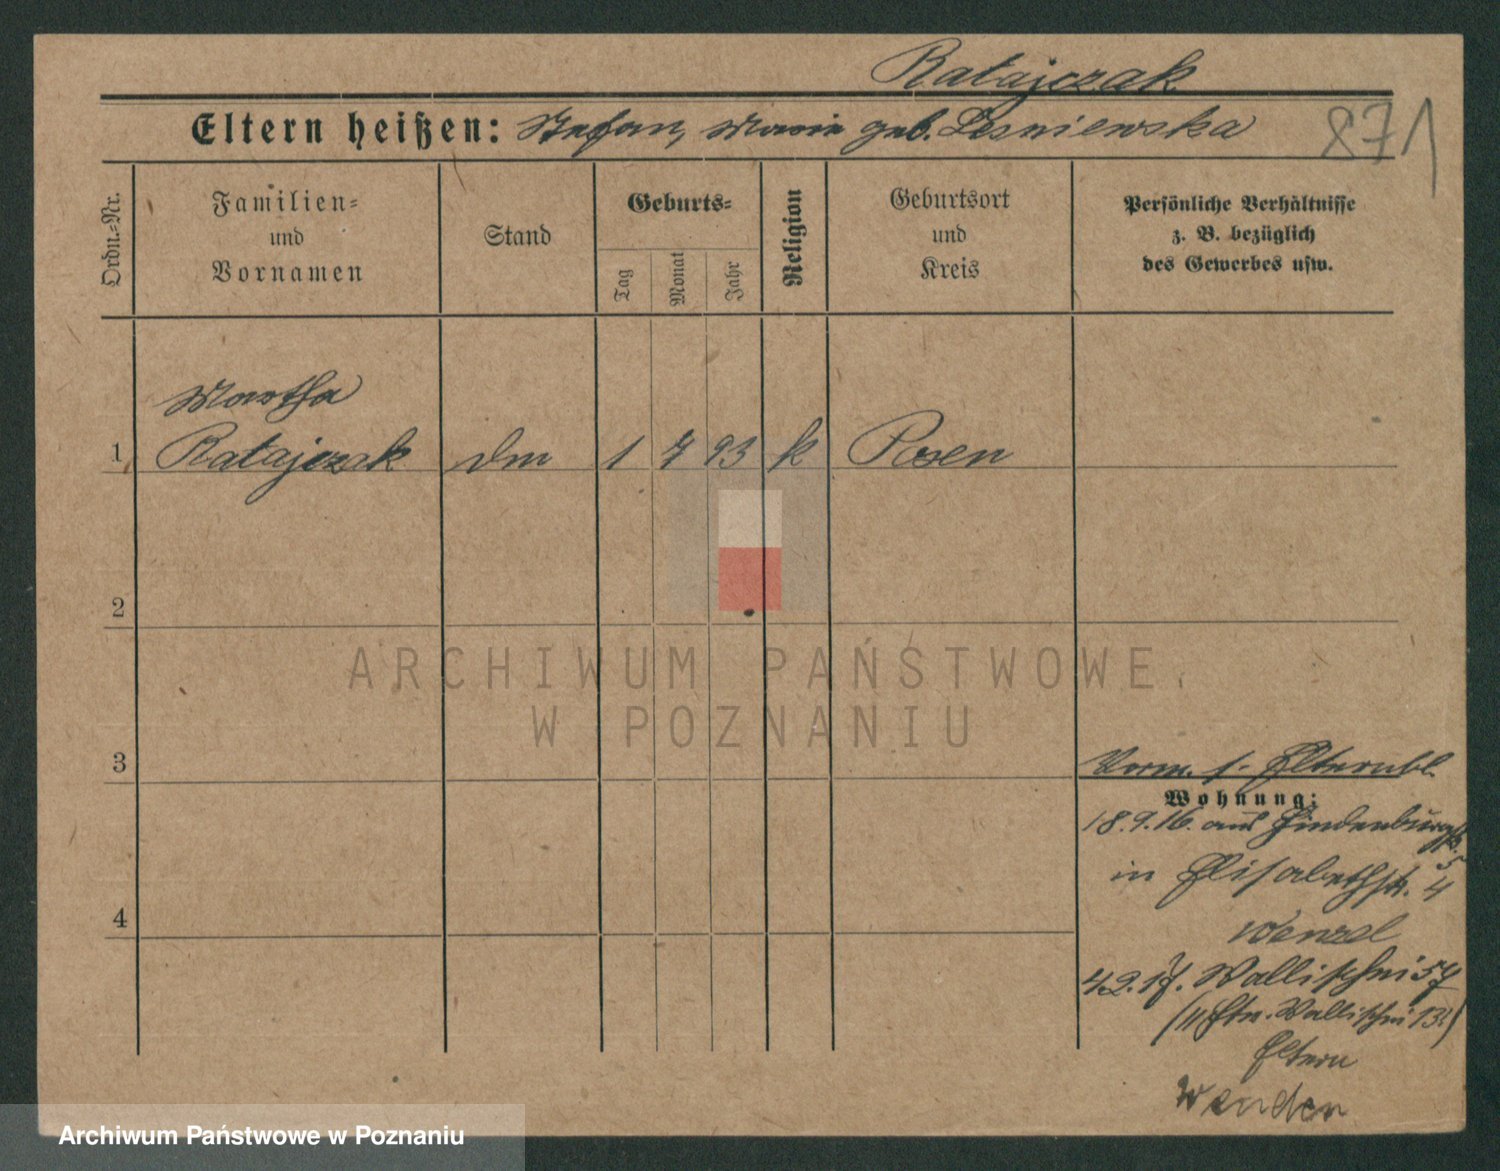 Ratajczak
Eltern heißen: Stefan, Marie geb. Lesniewska
871
Ordn.-Nr.
Familien-
und
Vornamen
Stand
Geburts-
Tag
Monat
Jahr
Religion
Geburtsort
und
Kreis
Persönliche Verhältnisse
z. B. bezüglich
des Gewerbes usw.
Martha
1 Ratajczak dm 1 7 93 k Posen
2
ARCHIWUM PAŃSTWOWE
W POZNANIU
3
Vorm. s. Elternbl.
Wohnung:
18.9.16. aus Hindenburgstr.
5
in Elisabethstr. 4
Wenzel
4
4.2.17. Wallischei 57
Wallischei 13
Eltern
Wenden
Archiwum Państwowe w Poznaniu